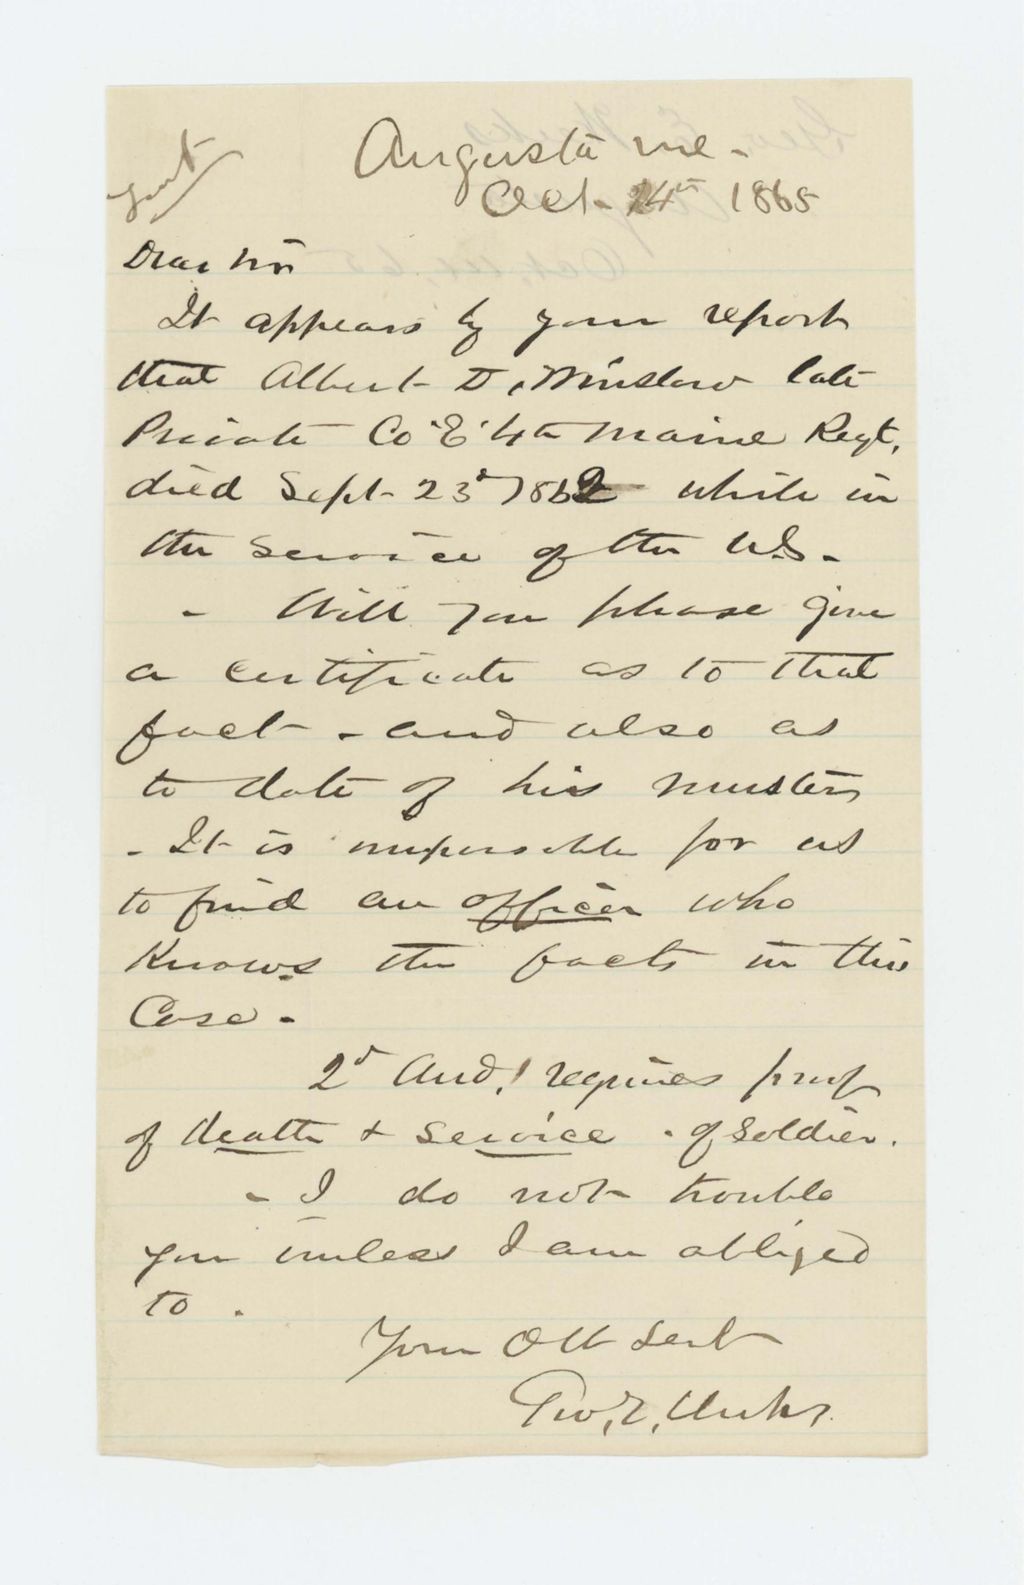 Augusta Me -
Oct - 24th 1865
Dear Sir
It appears by your report
that Albert D. Winslow late
Private Co "E" 4th Maine Regt.
died Sept - 23d 1862 while in
the service of the U.S. -
- Will you please give
a certificate as to that
fact - and also as
to date of his muster
- It is impossible for us
to find an officer who
knows the facts in this
Case -
2d Aud. requires proof
of death & service - of soldier.
- I do not trouble
you unless I am obliged
to .
Your Obt Servt
Geo. E.